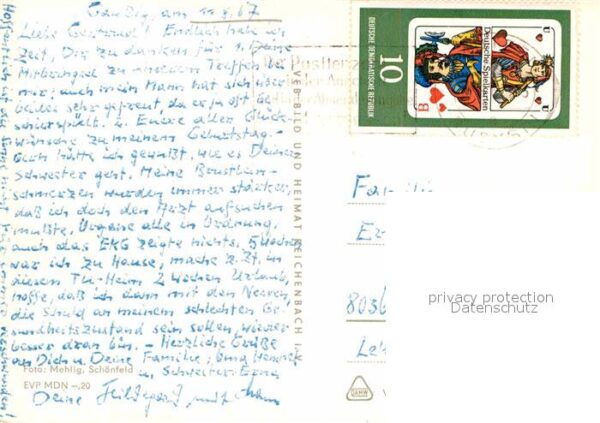 am 11.X.67
Liebe Gertraud! Endlich habe ich
Zeit, Dir zu danken für 1. Deine
Mitbringsel zu unserem Treffen bei
mir; auch mein Mann hat sich über
beides sehr gefreut, da er ja oft Ge-
schirr spült. 2. Eure aller Glück-
wünsche zu meinem Geburtstag.
Gern hätte ich gewußt, wie es Deiner
Schwester geht. Meine Brustbein-
schmerzen wurden immer stärker,
daß ich doch den Arzt aufsuchen
mußte. Organe alle in Ordnung,
auch das EKG zeigte nichts. 5 Wochen
war ich zu Hause, mache z.Zt. in
diesem Heim 2 Wochen Urlaub,
hoffe, daß ich dann mit den Nerven,
die Schuld an meinem schlechten Ge-
sundheitszustand sein sollen, wieder
besser dran bin. – Herzliche Grüße
an Dich u. Deine Familie,
u. Schwester
Deine Hildegard mit Mann
Foto: Mehlig, Schönfeld
EVP MDN –,20
VEB BILD UND HEIMAT REICHENBACH i. V.
DEUTSCHE DEMOKRATISCHE REPUBLIK
10
Deutsche Spielkarten
B
U
Fam
8036
privacy protection
Datenschutz